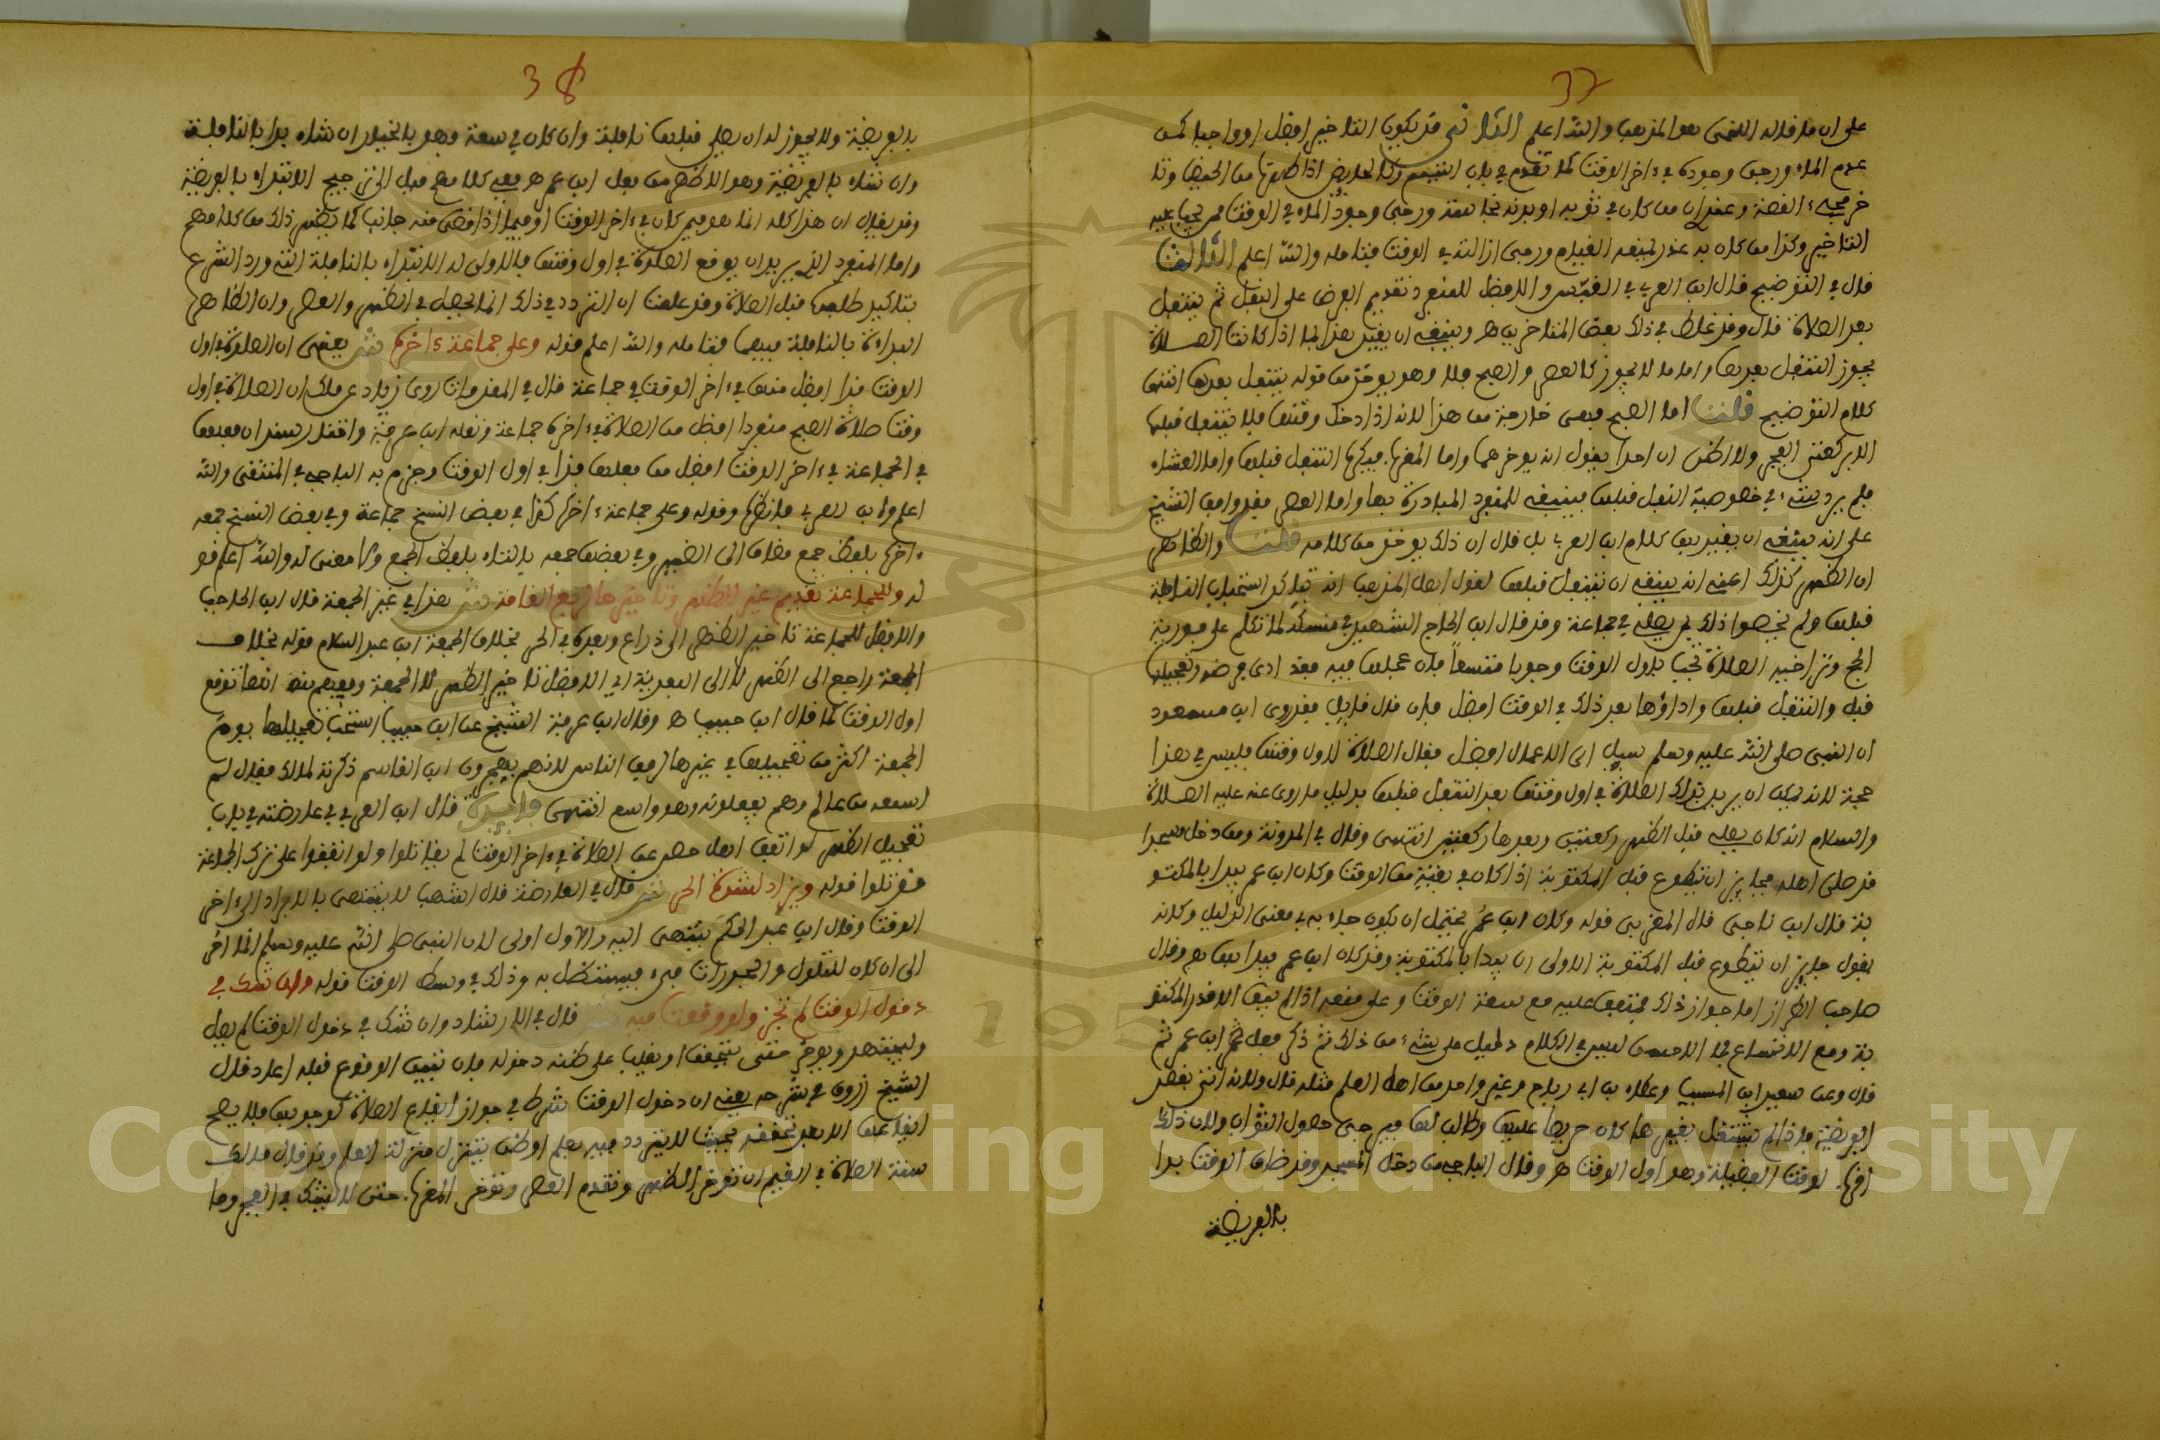 37
على ان ما قاله اللخمى هو المذهب والله اعلم الثانى قد يكون التاخير افضل او واجبا كمن
عدم الماء ورجى وجوده في ءاخر الوقت كما تقدم في باب التيمم وكالحايض اذا طهرت من الحيض وتا
القصة وعند ان من كان في ثوبه او بدنه نجاسة ورجى وجود الماء في الوقت فيجب عليه
التاخير وكذا من كان به عذر يمنعه القيام ورجى ازالته في الوقت فتامله والله اعلم الثالث
قال في التوضيح قال ابن العربي في القبس والافضل للمنفرد تقديم الفرض على النفل ثم يتنفل
بعد الصلاة قال وقد غلط في ذلك بعض المتاخرين هـ وينبغي ان يقيد هذا بما اذا كانت الصلاة
يجوز التنفل بعدها واما ما لا يجوز كالعصر والصبح فلا وهو يوخذ من قوله يتنفل بعدها انتهى
كلام التوضيح قلت اما الصبح فهى خارجة من هذا لانه اذا دخل وقتها فلا يتنفل قبلها
الا بركعتي الفجر ولا اظن ان احدا يقول انه يوخرهما واما المغرب فيكره التنفل قبلها واما العشاء
فلم يرد شيء في خصوصية النفل قبلها فينبغي للمنفرد المبادرة بها واما العصر
على انه ينبغي ان يقيد بها كلام ابن العربي بل قال ان ذلك يوخذ من كلامه قلت والظاهر
ان الظهر كذلك اعنى انه ينبغي ان يتنفل قبلها لقول اهل المذهب انه يتاكد استحباب النافلة
قبلها ولم يخصوا ذلك بمن يصلى في جماعة وقد قال ابن الحاج الشهير في منسكه لما تكلم على فورية
الحج وتراخيه الصلاة تجب باول الوقت وجوبا متسعا فان عملها فيه فقد ادى فرضه وتعجيلها
قبل والتنفل قبلها واداؤها بعد ذلك في الوقت افضل فان قال قايل فقد روى ابن مسعود
ان النبى صلى الله عليه وسلم سيل اى الاعمال افضل فقال الصلاة لاول وقتها فليس في هذا
حجة لانه يمكن ان يريد بذلك الصلاة في اول وقتها بعد التنفل قبلها بدليل ما روى عنه عليه الصلاة
والسلام انه كان يصلى قبل الظهر ركعتين وبعدها ركعتين انتهى وقال في المدونة ومن دخل مسجدا
قد صلى اهله فجايز ان يتطوع قبل المكتوبة اذا كان في بقية من الوقت وكان ابن عمر يبدا بالمكتو
بة قال ابن ناجى قال المغربي قوله وكان ابن عمر يحتمل ان يكون جاء به في معنى الدليل وكانه
يقول جايز ان يتطوع قبل المكتوبة والاولى ان يبدا بالمكتوبة وقد كان ابن عمر يبدا بها هـ وقال
صاحب الطراز اما جواز ذلك فمتفق عليه مع سعة الوقت وعلى منعه اذا لم يبق الا قدر المكتو
بة ومع الاتساع فما الاحسن ليس في الكلام دليل على شيء من ذلك ثم ذكر فعل ابن عمر ثم
قال وعن سعيد ابن المسيب وعطاء بن ابي رباح وغير واحد من اهل العلم مثله قال ولانه انما يقصد
الفريضة فاذا لم يشتغل بغيرها كان حريصا عليها وطالبا لها فيرجى حصول الثواب ولان ذلك
اقرب لوقت الفضيلة وهو اول الوقت هـ وقال الباجي من دخل المسجد وقد ضاق الوقت بدا
بالفريضة
38
بالفريضة ولا يجوز له ان يصلى قبلها نافلة وان كان في سعة وهو بالخيار ان شاء بدا بالنافلة
وان شاء بالفريضة وهو الاظهر من فعل ابن عمر هـ ففي كلامهم ميل الى ترجيح الابتداء بالفريضة
وقد يقال ان هذا كله انما هو فيمن كان في ءاخر الوقت او فيما اذا مضى منه جانب كما يفهم ذلك من كلامهم
واما المنفرد الذي يريد ان يوقع الصلاة في اول وقتها فالاولى له الابتداء بالنافلة التي ورد الشرع
بتاكيد طلبها قبل الصلاة وقد علمت ان التردد في ذلك انما يحصل في الظهر والعصر وان الظاهر
البداءة بالنافلة فيهما فتامله والله اعلم قوله وعلى جماعة ءاخره ش يعنى ان الصلاة في اول
الوقت فذا افضل منها في ءاخر الوقت في جماعة قال في المقدمات روى زياد عن مالك ان الصلاة في اول
وقت صلاة الصبح منفردا افضل من الصلاة في ءاخره جماعة ونقله ابن عرفة وفعلها
في الجماعة في ءاخر الوقت افضل من فعلها فذا في اول الوقت وجزم به الباجي في المنتقى والله
اعلم ولابن العربي فانظره وقوله وعلى جماعة ءاخره كذا في بعض النسخ جماعة وفي بعض النسخ جمعه
ءاخره بلفظ جمع مضاف الى الضمير وفي بعضها جمعه بالتاء بلفظ الجمع ولا معنى له والله اعلم قو
له وللجماعة تقديم غير الظهر وتاخيرها لربع القامة ش هذا في غير الجمعة قال ابن الحاجب
والافضل للجماعة تاخير الظهر الى ذراع وبعده في الحر بخلاف الجمعة ابن عبد السلام قوله بخلاف
الجمعة راجع الى الظهر لا الى البعدية اى الافضل تاخير الظهر لا الجمعة ويفهم منه انها توقع
اول الوقت كما قال ابن حبيب هـ وقال ابن عرفة الشيخ عن ابن حبيب استحب تعجيلها يوم
الجمعة اكثر من تعجيلها في غيرها لرفق الناس لانهم يهجرون ابن القاسم ذكرته لمالك فقال لم
اسمعه من عالم وهم يفعلونه وهو واسع انتهى فايدة قال ابن العربي في عارضته في باب
تعجيل الظهر لو اتفق اهل مصر على الصلاة في ءاخر الوقت لم يقاتلوا ولو اتفقوا على ترك الجماعة
قوتلوا قوله ويزاد لشدة الحر ش قال في العارضة قال اشهب لا ينتهى بالابراد الى ءاخر
الوقت وقال ابن عبد الحكم ينتهى اليه والاول اولى لان النبى صلى الله عليه وسلم انما اخر
الى ان كان للتلول والجدرات فيء فيستظل به وذلك في وسط الوقت قوله وان شك في
دخول الوقت لم تجز ولو وقعت فيه ش قال في الارشاد وان شك في دخول الوقت لم يصل
وليجتهد ويوخر حتى يتحقق او يغلب على ظنه دخوله فان تبين الوقوع قبله اعاد قال
الشيخ زروق في شرحه يعنى ان دخول الوقت شرط في جواز ايقاع الصلاة كوجوبها فلا يصح
ايقاعها الا بعد تحققه بحيث لا يتردد فيه بعلم او ظن يتنزل منزلة العلم وقد قال مالك
سنة الصلاة في الغيم ان توخر الظهر وتقدم العصر وتوخر المغرب حتى لا يشك في الفجر وما
Copyright © King Saud University